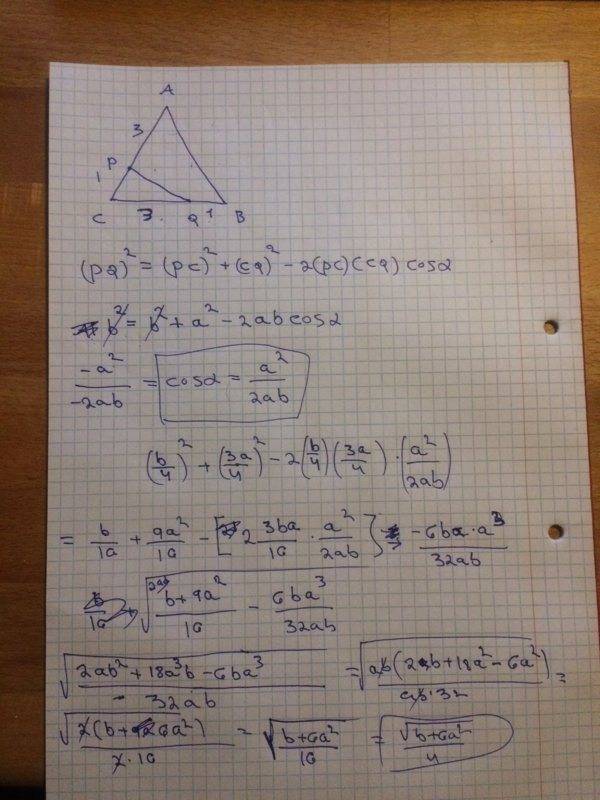 A
3
P
1
C 3. Q 1 B
(PQ)² = (PC)² + (CQ)² - 2(PC)(CQ) cosα
b² = b² + a² - 2ab cosα
-a²/-2ab = cosα = a²/2ab
(b/4)² + (3a/4)² - 2(b/4)(3a/4) · (a²/2ab)
= b/16 + 9a²/16 - [2 3ba/16 · a²/2ab] -6ba·a³/32ab
b/16 √(b+9a²/16 - 6ba³/32ab)
√(2ab²+18a³b-6ba³/32ab) = √(ab(2b+18a²-6a²)/ab·32) =
√(2(b+6a²)/2·16) = √(b+6a²/16) = √(b+6a²)/4